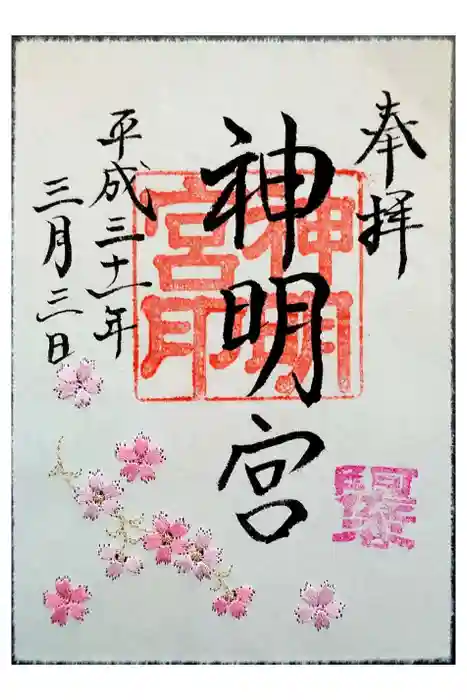 奉拝
神明宮
神明
宮印
平成三十一年
三月三日